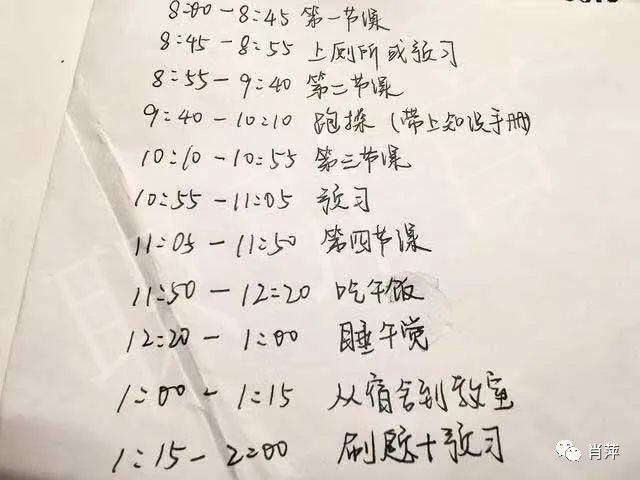 8:00-8:45 第一节课
8:45-8:55 上厕所或预习
8:55-9:40 第二节课
9:40-10:10 跑操 (带上知识手册)
10:10-10:55 第三节课
10:55-11:05 预习
11:05-11:50 第四节课
11:50-12:20 吃午饭
12:20-1:00 睡午觉
1:00-1:15 从宿舍到教室
1:15-2:00 刷题+预习
肖萍